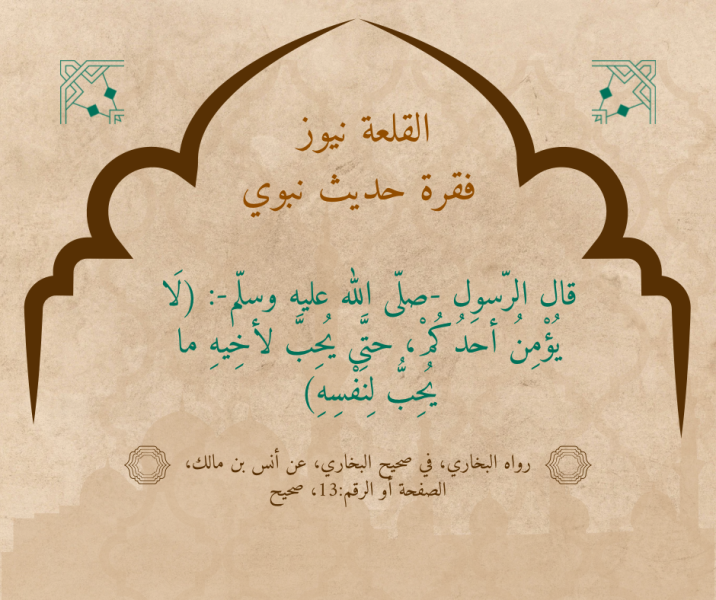 القلعة نيوز
فقرة حديث نبوي
قال الرّسول -صلّى الله عليه وسلّم-: (لَا
يُؤْمِنُ أحَدُكُمْ، حتَّى يُحِبَّ لأخِيهِ ما
يُحِبُّ لِنَفْسِهِ)
رواه البخاري، في صحيح البخاري، عن أنس بن مالك،
الصفحة أو الرقم:13، صحيح